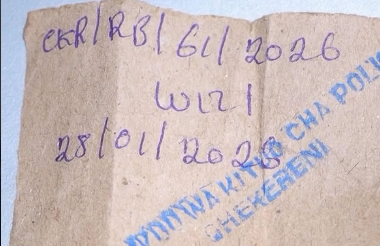 CKR/RB/61/2026
WIZI
28/01/2026
KITUO CHA POLI
CHEKERENI